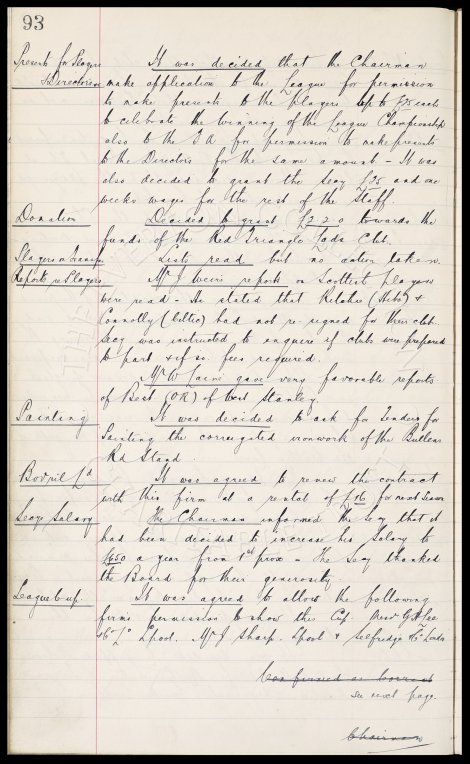 93
Presents for Players
& Directors
It was decided that the Chairman
make application to the League for permission
to make presents to the Players up to £75 each
to celebrate the winning of the League Championship
also to the F A for permission to make presents
to the Directors for the same amount - It was
also decided to grant the Secy £75 and one
weeks wages for the rest of the Staff.
Donation
Decided to grant £2 2 0 towards the
funds of the Red Triangle Lads Club.
Players on Transfer
Lists read but no action taken.
Reports re Players
Mr J Weirs reports on Scottish players
were read - He stated that (Hibs) &
Connolly (Celtic) had not re-signed for their club.
Secy was instructed to enquire if clubs were prepared
to part & if so fees required.
Mr W gave very favorable reports
of Best (OR) of West Stanley.
Painting
It was decided to ask for Tenders for
Painting the corrugated ironwork of the Bullens
Rd Stand.
Bovril Ld
It was agreed to renew the contract
with this firm at a rental of £16 for next season
Secys Salary
The Chairman informed the Secy that it
had been decided to increase his Salary to
£650 a year from 1st prox - The Secy thanked
the Board for their generosity.
League Cup
It was agreed to allow the following
firms permission to show the Cup. G H Lee
& Co Ld Lpool. Mr J Sharp. Lpool & Selfridge & Co London
Confirmed as correct
see next page.
Chairman